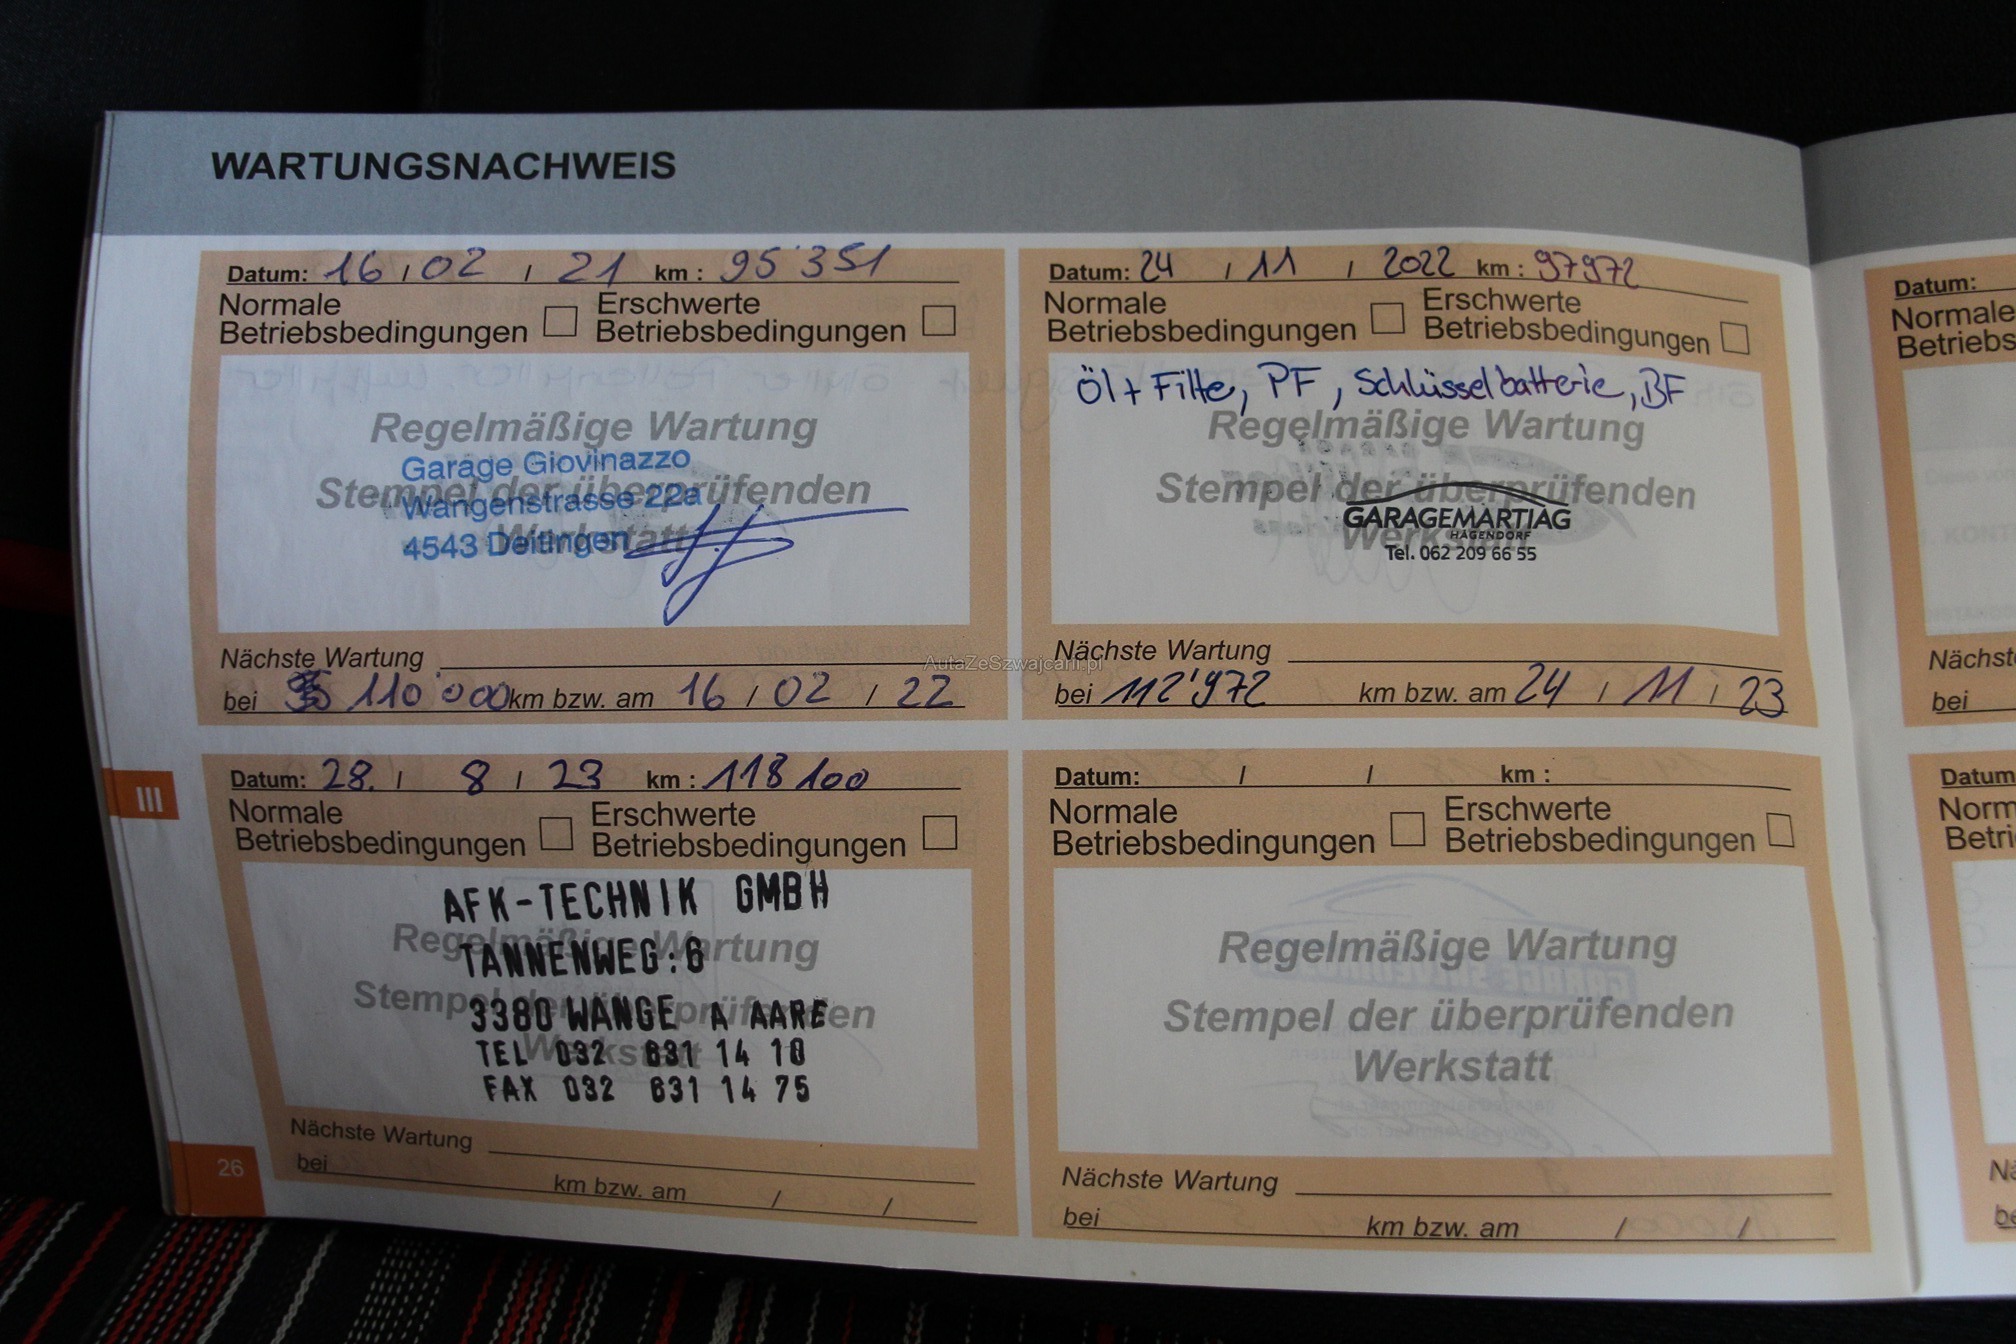 WARTUNGSNACHWEIS
Datum: 16 / 02 / 21 km : 95'351
Normale Betriebsbedingungen Erschwerte Betriebsbedingungen
Regelmäßige Wartung
Stempel der überprüfenden
Werkstatt
Garage Giovinazzo
Wangenstrasse 22a
4543 Deitingen
Nächste Wartung
bei 110'000 km bzw. am 16 / 02 / 22
Datum: 24 / 11 / 2022 km : 97972
Normale Betriebsbedingungen Erschwerte Betriebsbedingungen
Öl + Filte, PF, Schlüsselbatterie, BF
Regelmäßige Wartung
Stempel der überprüfenden
Werkstatt
GARAGEMARTIAG
HÄGENDORF
Tel. 062 209 66 55
Nächste Wartung
bei 112'972 km bzw. am 24 / 11 / 23
AutaZeSzwajcarii.pl
Datum: 28. / 8 / 23 km : 118100
Normale Betriebsbedingungen Erschwerte Betriebsbedingungen
AFK-TECHNIK GMBH
Regelmäßige Wartung
TANNENWEG:6
Stempel der überprüfenden
3380 WANGE A AARE
Werkstatt
TEL 032 631 14 10
FAX 032 631 14 75
Nächste Wartung
bei km bzw. am / /
Datum: / / km :
Normale Betriebsbedingungen Erschwerte Betriebsbedingungen
Regelmäßige Wartung
Stempel der überprüfenden
Werkstatt
Nächste Wartung
bei km bzw. am / /
III
26
Datum:
Normale
Betriebs
Nächst
bei
Datum
Norm
Betri
Nä
be